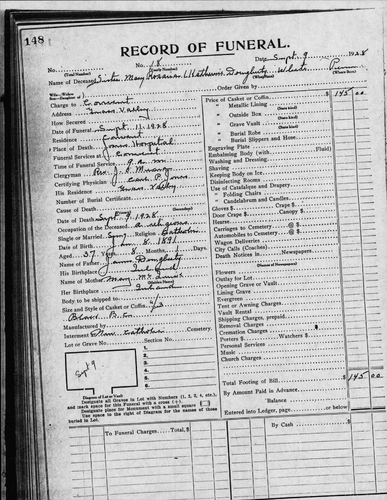 148
RECORD OF FUNERAL.
No. No. 18 Date Sept. 9 1928
(Total Number) (Yearly Number)
Name of Deceased Sister Mary Rosaria (Kathleen Dougherty White Penn
(Where Born)
Order Given by
Charge to Convent
Address
How Secured
Date of Funeral Sept. 11, 1928
Residence Convent
Place of Death Jones Hospital
Funeral Services at Convent
Time of Funeral Service 9 a.m.
Clergyman Rev. J. E.
Certifying Physician P. Jones
His Residence Valley
Number of Burial Certificate
Cause of Death
Date of Death Sept 9, 1928
Occupation of the Deceased a religious
Single or Married Religion Catholic
Date of Birth Jan 8, 1891
Aged 37 Years 8 Months Days
Name of Father James Dougherty
His Birthplace Ireland
Name of Mother Mary
Her Birthplace Ireland
Body to be shipped to
Size and Style of Casket or Coffin
Black
Manufactured by
Interment Catholic Cemetery.
Lot or Grave No. Section No.
Sept 9
1.
2.
3.
4.
5.
6.
Diagram of Lot or Vault
Designate all Graves in Lot with Numbers (1, 2, 3, 4, etc.), and mark space for this Funeral with a cross (+)
Designate place for Monument with a small square
Use space to right of Diagram for the names of those buried in Lot.
Price of Casket or Coffin $ 145 00
" Metallic Lining
(State kind)
" Outside Box
(State kind)
" Grave Vault
(State kind)
" Burial Robe
(State kind)
" Burial Slippers and Hose
Engraving Plate
Embalming Body (with Fluid)
Washing and Dressing
Shaving
Keeping Body on Ice
Disinfecting Rooms
Use of Catafalque and Drapery
" Folding Chairs
" Candelabrum and Candles
Gloves $ Chairs $
Door Crape $ Canopy $
Hearse
Carriages to Cemetery @ $
Automobiles to Cemetery @ $
Wagon Deliveries
City Calls (Coaches)
Death Notices in Newspapers
(Names of Newspapers)
Flowers
Outlay for Lot
Opening Grave or Vault
Lining Grave
Evergreen
Tent or Awning Charges
Vault Rental
Shipping Charges, prepaid
Removal Charges
Cremation Charges
Porters $ Watchers $
Personal Services
Music
Church Charges
Total Footing of Bill $ 145 00
By Amount Paid in Advance
Balance
Entered into Ledger, page or below.
To Funeral Charges Total, $
By Cash $